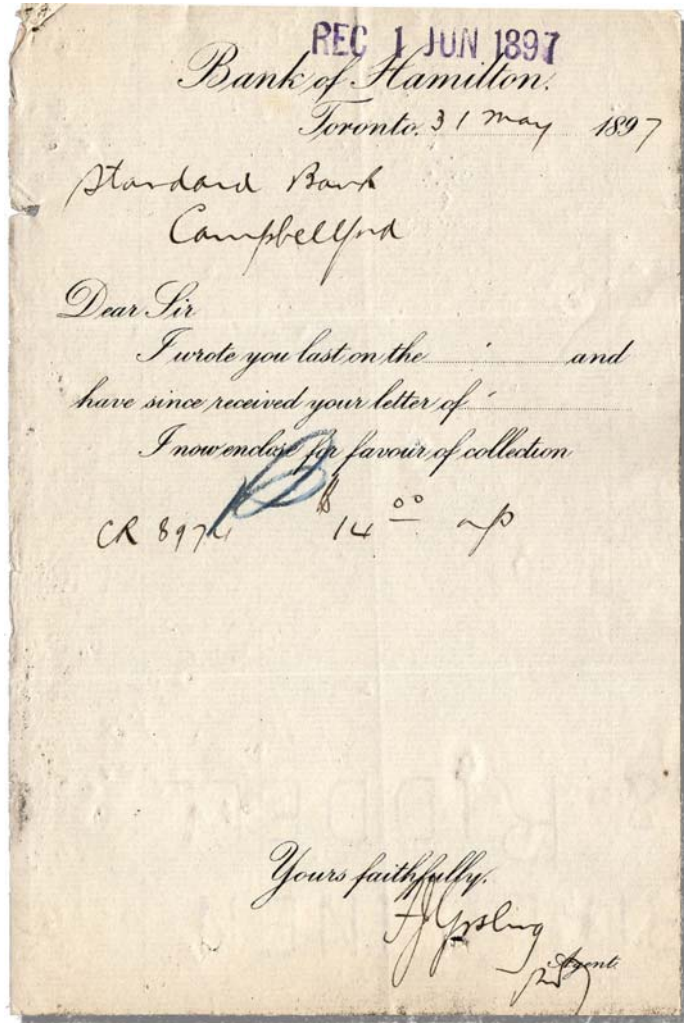 REC 1 JUN 1897
Bank of Hamilton.
Toronto. 31 May 1897
Standard Bank
Campbellford
Dear Sir
I wrote you last on the " and
have since received your letter of "
I now enclose for favour of collection
CR 8974 $14 00
Yours faithfully.
Agent.